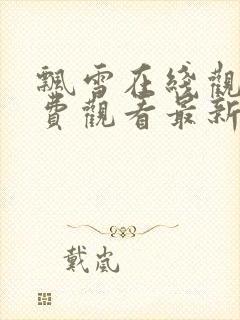 飄雪在綫觀
費觀看最新
戴嵐